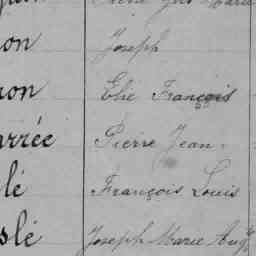 Marie
non Joseph
non Elie François
arrée Pierre Jean
lé François Louis
slé Joseph Marie Aug